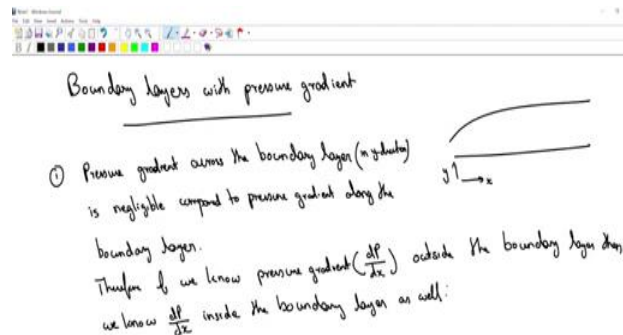 Boundary layers with pressure gradient
① Pressure gradient across the boundary layer (in y-direction)
is negligible compared to pressure gradient along the
boundary layer.
y
x
Therefore if we know pressure gradient (dP/dx) outside the boundary layer then
we know dP/dx inside the boundary layer as well.